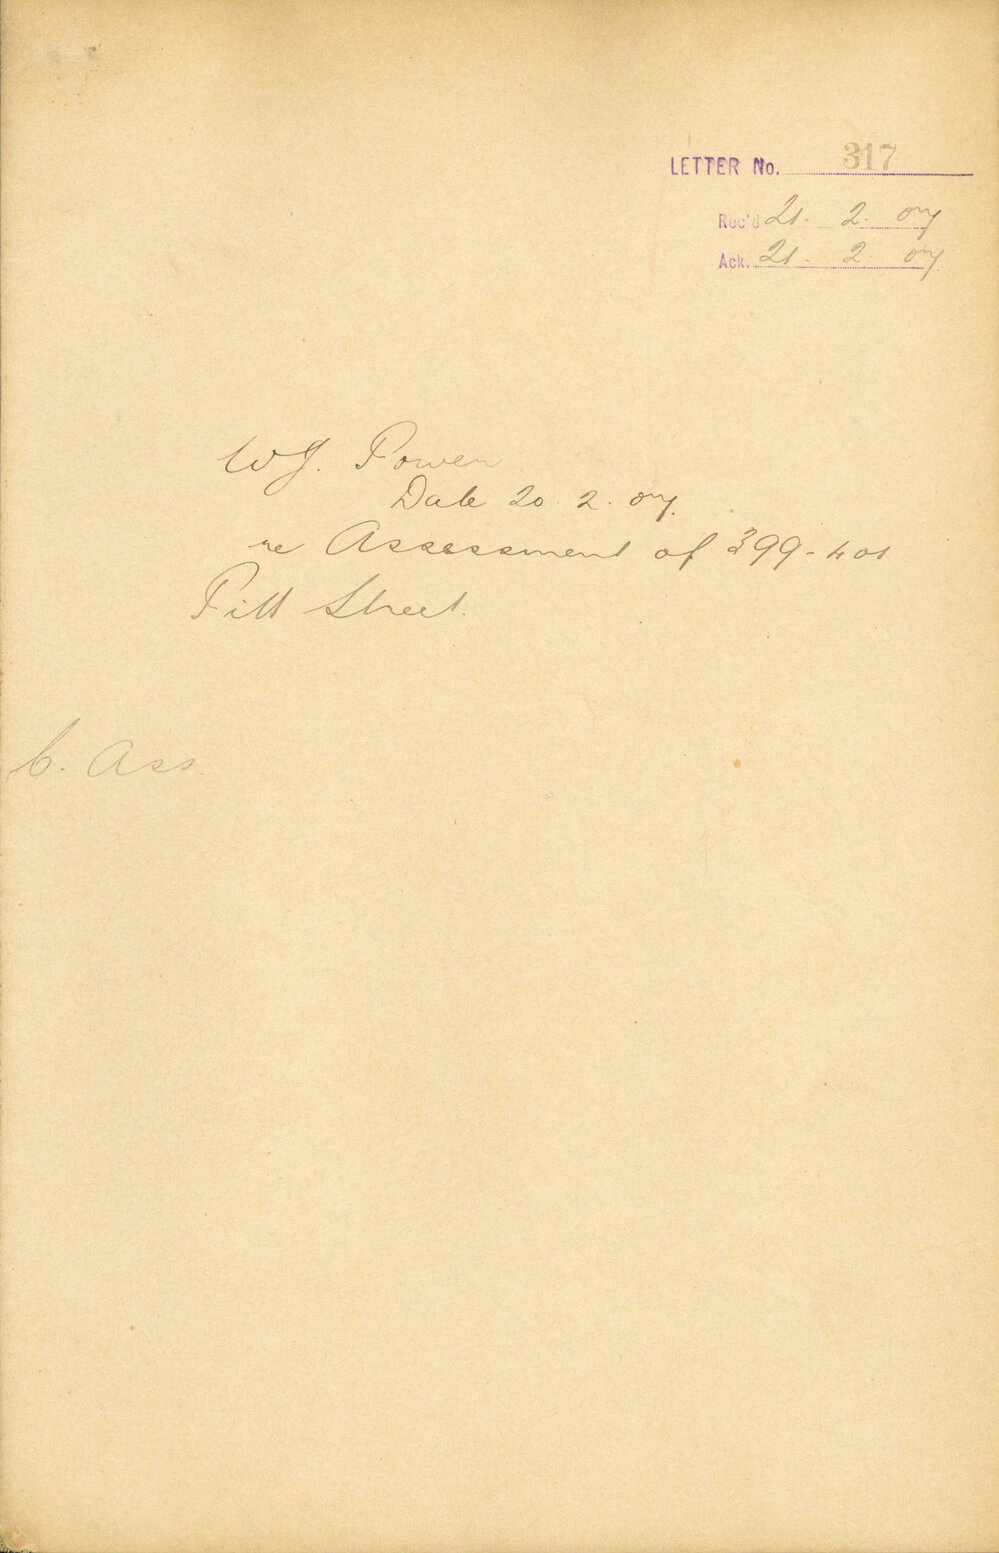 LETTER No. 317
Rec'd 21. 2. 07
Ack. 21. 2. 07
WJ. Power
Date 20. 2. 07.
re Assessment of 399-401
Pitt Street.
C. Ass.